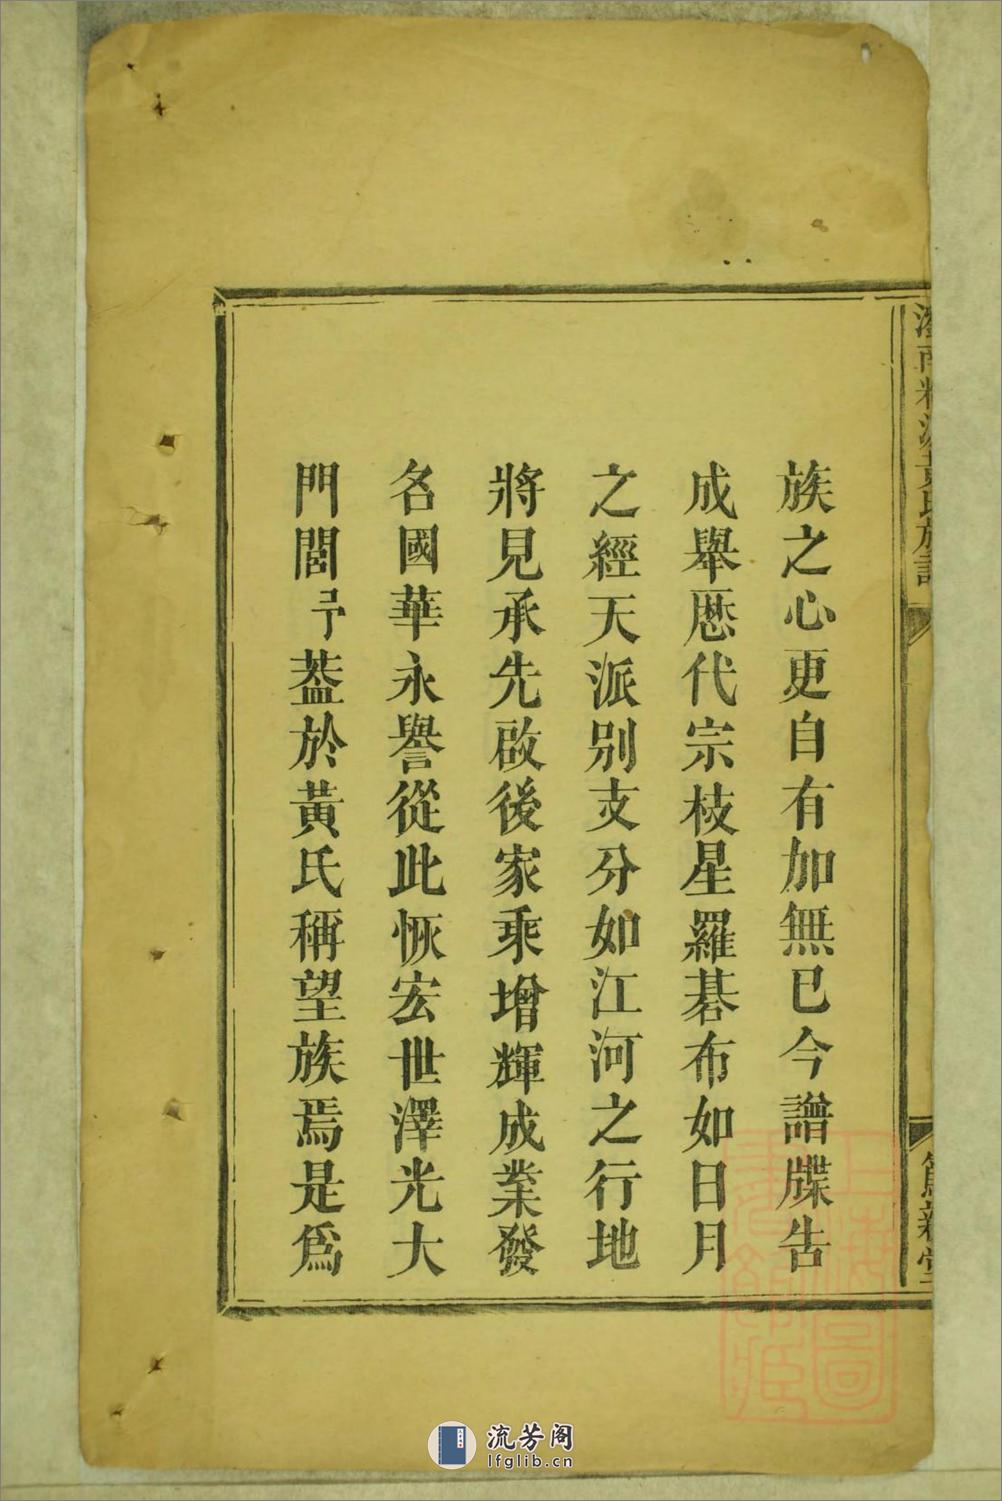 族之心更自有加無已今譜牒告
成舉厯代宗枝星羅碁布如日月
之經天派別支分如江河之行地
將見承先啟後家乘增輝成業發
名國華永譽從此恢宏世澤光大
門閭予葢於黃氏稱望族焉是爲
流芳阁
lfglib.cn